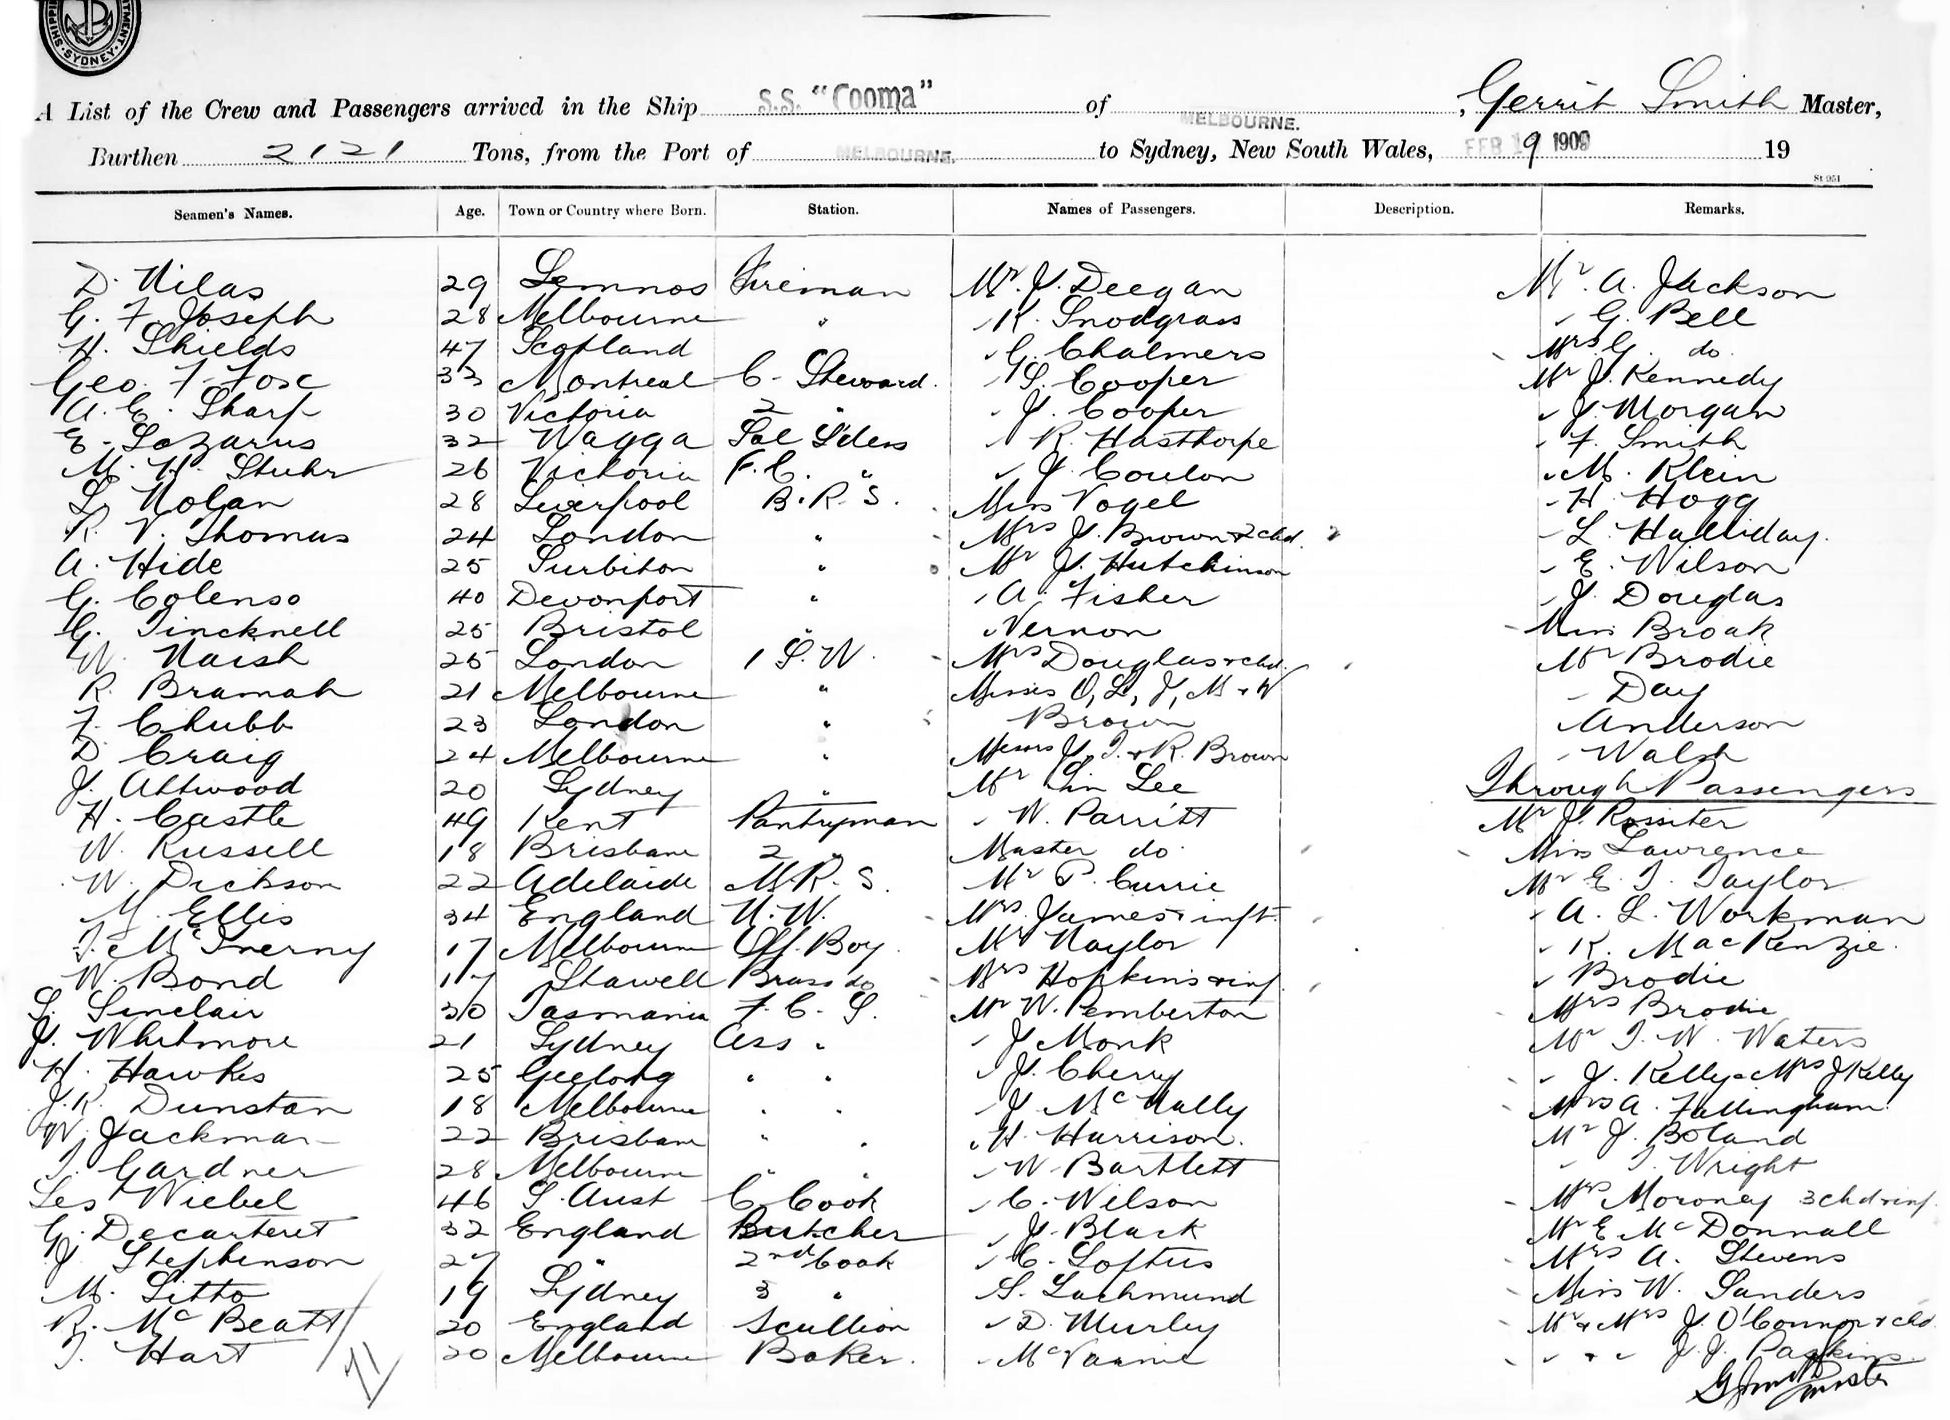 SHIPPING
TMENT.
SYDNEY
A List of the Crew and Passengers arrived in the Ship S.S. "Cooma" of MELBOURNE. , Gerrit Smith Master,
Burthen 2121 Tons, from the Port of MELBOURNE. to Sydney, New South Wales, FEB 19 1909 19
St 951
Seamen's Names. Age. Town or Country where Born. Station. Names of Passengers. Description. Remarks.
D. Nilas 29 Lemnos Fireman Mr. J. Deegan Mr. A. Jackson
G. F. Joseph 28 Melbourne " " K. Snodgrass " G. Bell
H. Shields 47 Scotland " G. Chalmers Mrs G. do
Geo. F. Fose 33 Montreal C. Steward. " S. Cooper Mr J. Kennedy
A. E. Sharp 30 Victoria 2 " " J. Cooper " J. Morgan
E. Lazarus 32 Wagga Sal S'dess " R. Hasthorpe " F. Smith
M. H. Stuhr 26 Victoria F.C. " " J. Coulon " M. Klein
L. Nolan 28 Liverpool B.R.S. Miss Vogel " H. Hogg
R. V. Thomas 24 London " Mrs J. Brown & 2 chd. " L. Halliday.
A. Hide 25 Surbiton " Mr J. Hutchinson " E. Wilson
G. Colenso 40 Devonport " " A. Fisher " J. Douglas
G. Tincknell 25 Bristol " " Vernon Miss Broak
W. Naish 25 London 1 S.W. Mrs Douglas & chd. Mr Brodie
R. Bramah 21 Melbourne " Misses O, L, J, M & W " Day
F. Chubb 23 London " Brown " Anderson
D. Craig 24 Melbourne " Messrs J, T. & R. Brown " Walsh
J. Attwood 20 Sydney " Mr Lin Lee Through Passengers
H. Castle 49 Kent Pantryman " W. Parritt Mr J. Rossiter
W. Russell 18 Brisbane 2 " Master do. Miss Lawrence
W. Dickson 22 Adelaide M.R.S. Mr P. Currie Mr E. T. Taylor
M. Ellis 34 England N.W. Mrs James & inft. " A. L. Workman
T. McInerny 17 Melbourne Off. Boy. Mr Naylor " K. MacKenzie.
W. Bond 17 Stawell Brass do Mrs Hopkins & inf. " Brodie
S. Sinclair 30 Tasmania F.C.S. Mr W. Pemberton Mrs Brodie
J. Whitmore 21 Sydney Ass " " J Monk Mr T. W. Waters
H. Hawkes 25 Geelong " " " J. Cherry " J. Kelly & Mrs J Kelly
J.R. Dunstan 18 Melbourne " " " J. McNally Mrs A. Fallingham.
W. Jackman 22 Brisbane " " " H. Harrison. Mr J. Boland
T. Gardner 28 Melbourne " " " W. Bartlett " T. Wright
Les Wiebel 46 S. Aust C. Cook " C. Wilson Mrs Moroney 3 chd & inf.
G. Decarteret 32 England Butcher " J. Black Mr E McDonnall
J. Stephenson 27 " 2nd Cook " C. Loftus Mrs A. Stevens
M. Sitto 19 Sydney 3 " S. Lachmund Miss W. Sanders
R. McBeatt 20 England Scullion " D. Murley Mr & Mrs J. O'Connor & chd.
T. Hart 20 Melbourne Baker. " " & " J. J. Paskins
71
G Smith Master